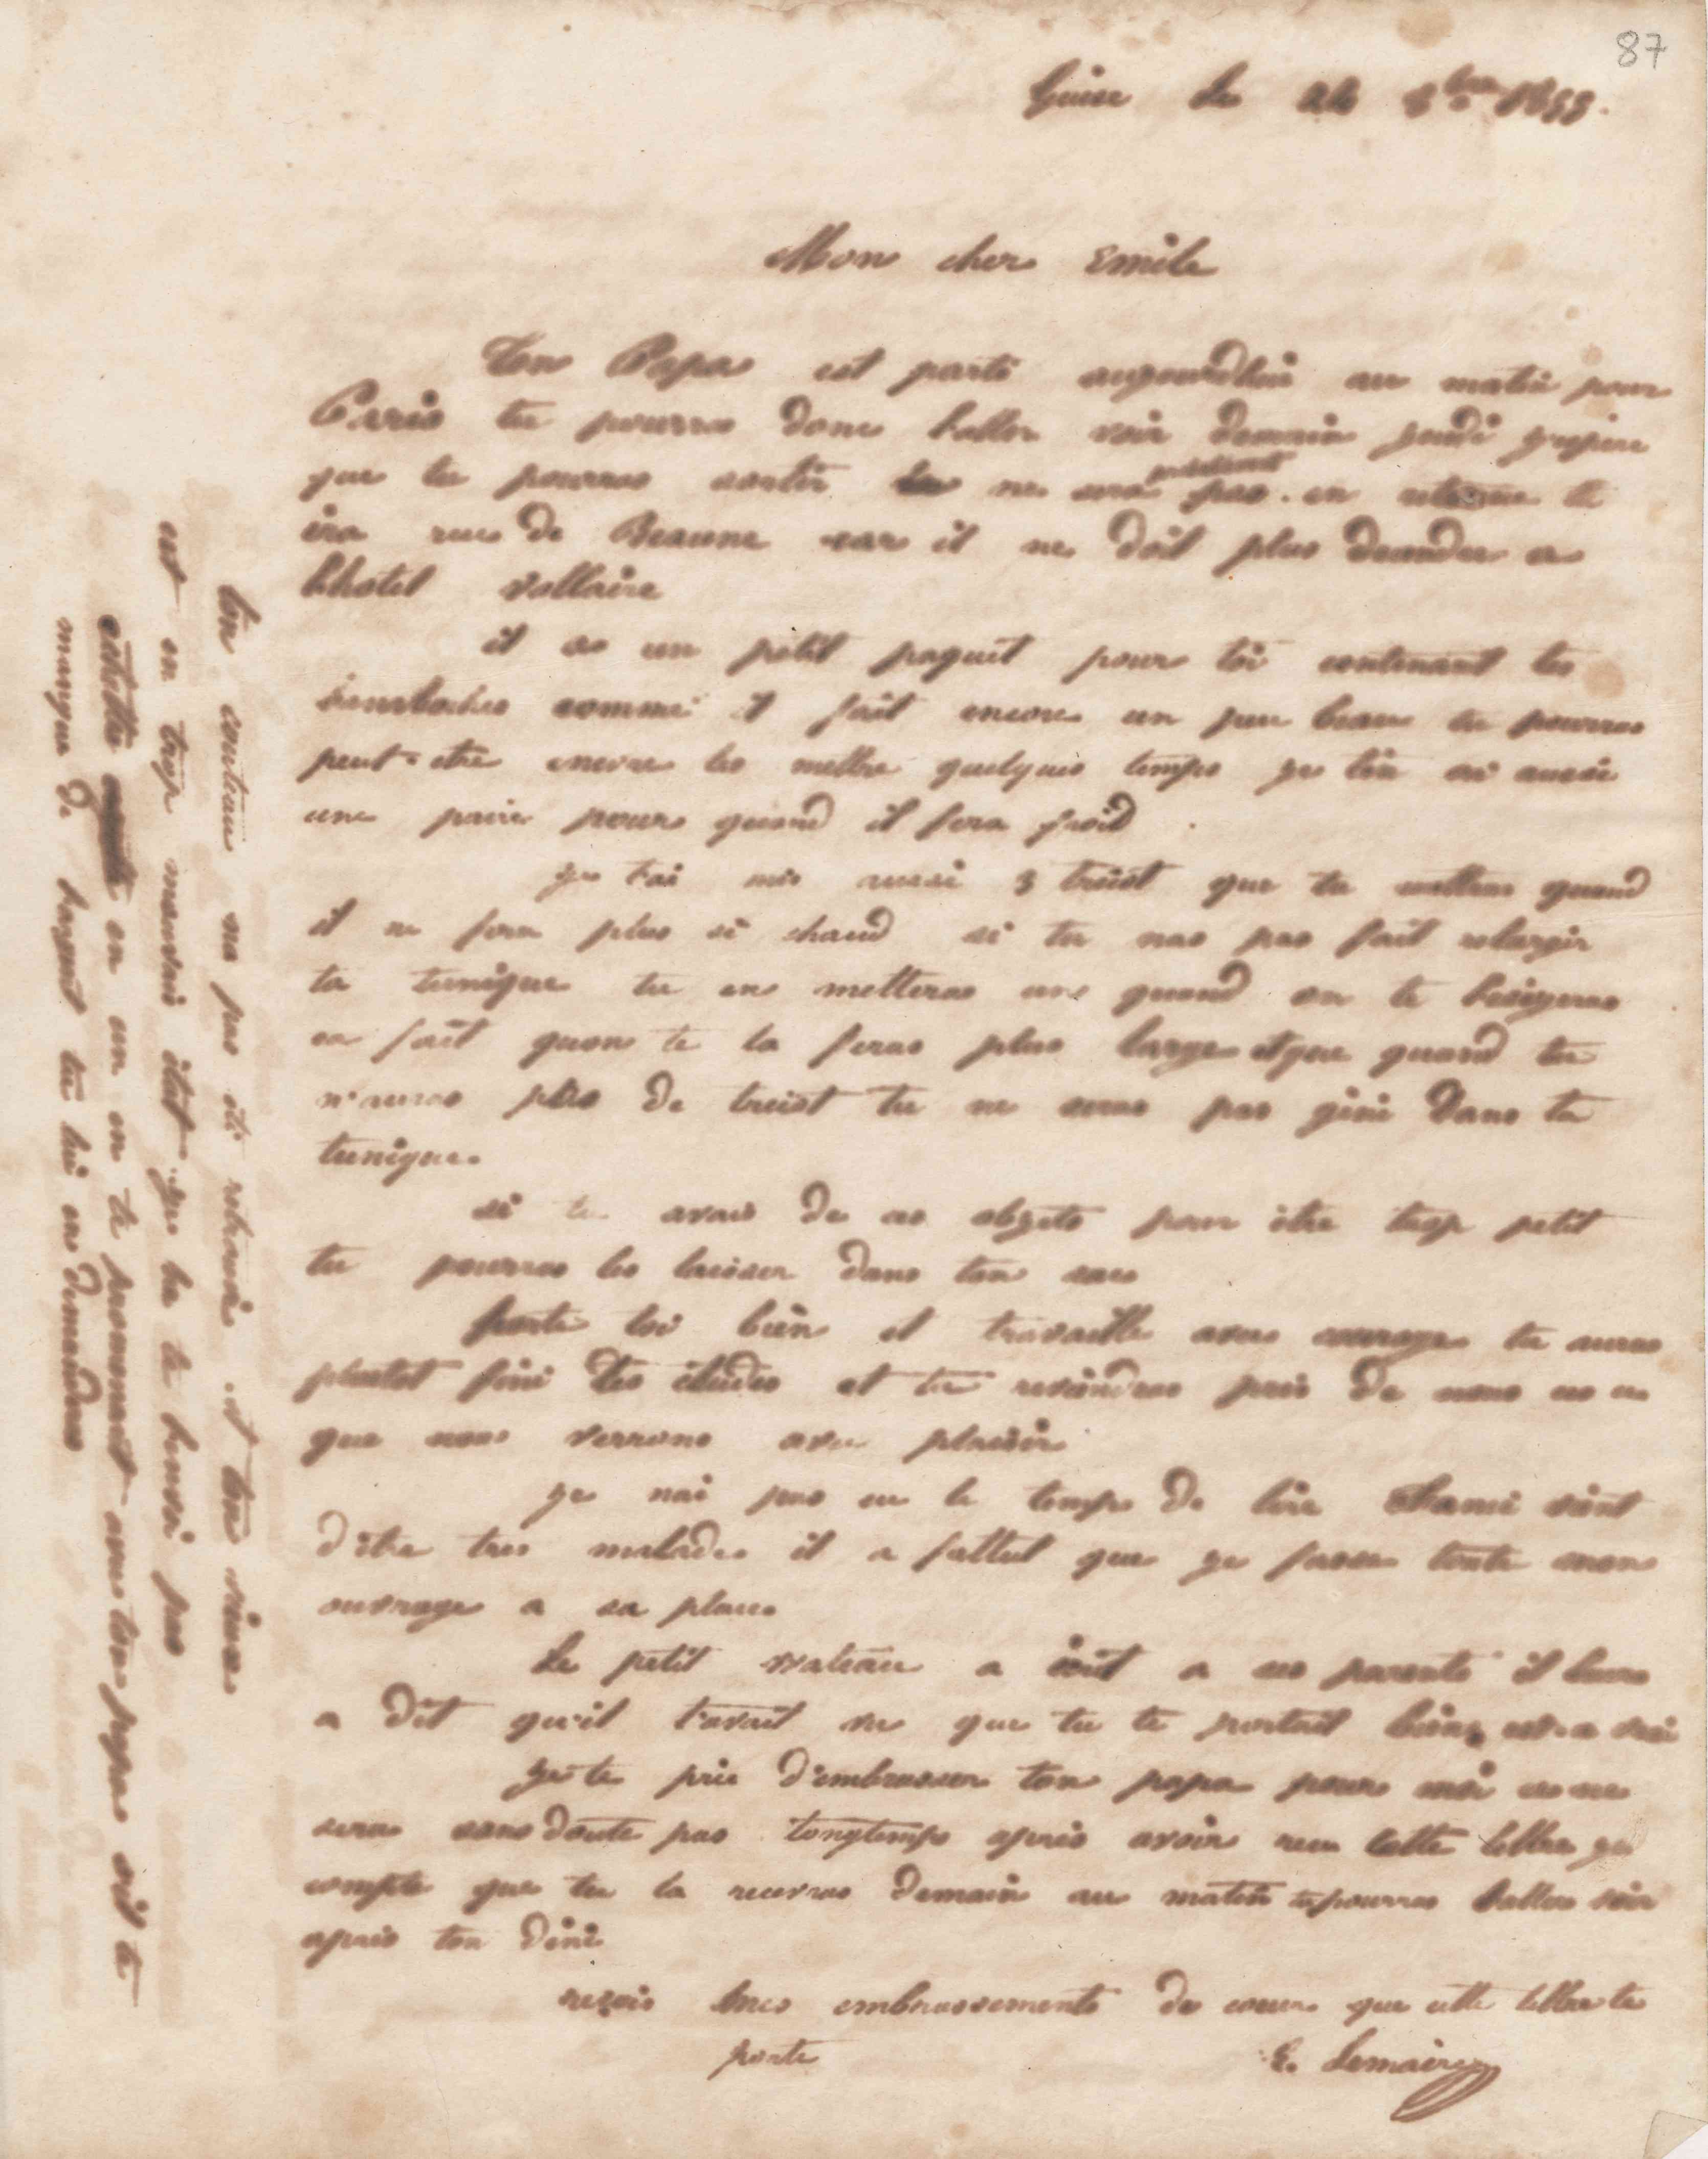 87
Guise le 8bre 1853.
Mon cher Emile
Ton Papa est parti aujourdhui au matin pour
Paris tu pourras donc l'aller voir demain jeudi j'espère
que tu pourras sortir ne sera pas en il
ira rue de Beaune car il ne doit plus a
lhotel voltaire
il a un petit paquet pour toi contenant tes
comme il fait encore un peu beau tu pourras
peut-etre encore les mettre quelques temps je t'en ai aussi
une paire pour quand il fera froid
je t'ai mis aussi 3 tricot que tu metteras quand
il ne fera plus si chaud si tu nas pas fait relargir
ta tunique tu en metteras un quand on te
en fait quon te la feras plus large et que quand tu
n'auras plus de tricot tu ne seras pas gêné dans ta
tunique.
si tu avais de ces objets pour être trop petit
tu pourras les laisser dans ton sac
porte toi bien et travaille avec courage tu auras
plustot fini tes études et tu reviendras près de nous ce
que nous verrons avec plaisir
je nai pas eu le temps de lire vient
d'être tres malade il a fallut que je fasse toute mon
ouvrage a sa place
Le petit a écrit a ses parents il leur
a dit qu'il t'avait vu que tu te portait bien, est-ce vrai
je te prie d'embrasser ton papa pour moi ce ne
sera sans doute pas longtemps après avoir reçu cette lettre je
compte que tu la recevras demain au matin tu pourras l'aller voir
après ton diné
reçois mes embrassements de coeur que cette lettre te
porte
E. Lemaire
ton couteau na pas été retrouvé et ton
est en trop mauvais état je ne te l'envoi pas
en un en te promenant avec ton papa s'il te
manque de l'argent tu lui en demanderas